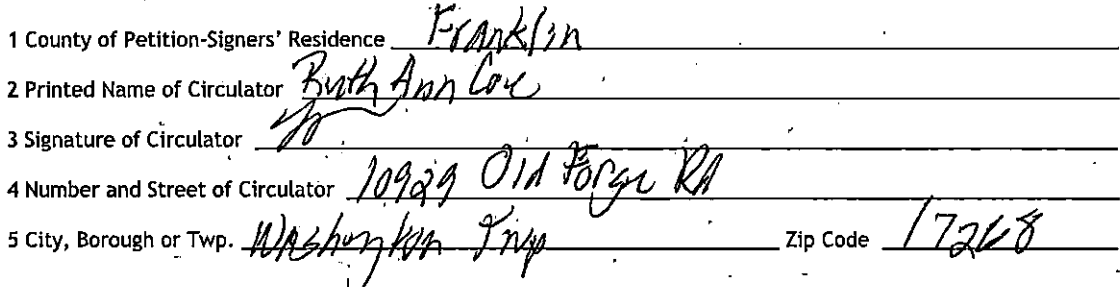 1 County of Petition-Signers' Residence Franklin
2 Printed Name of Circulator Ruth Ann Coe
3 Signature of Circulator
4 Number and Street of Circulator 10929 Old Forge Rd
5 City, Borough or Twp. Washington Twp Zip Code 17268